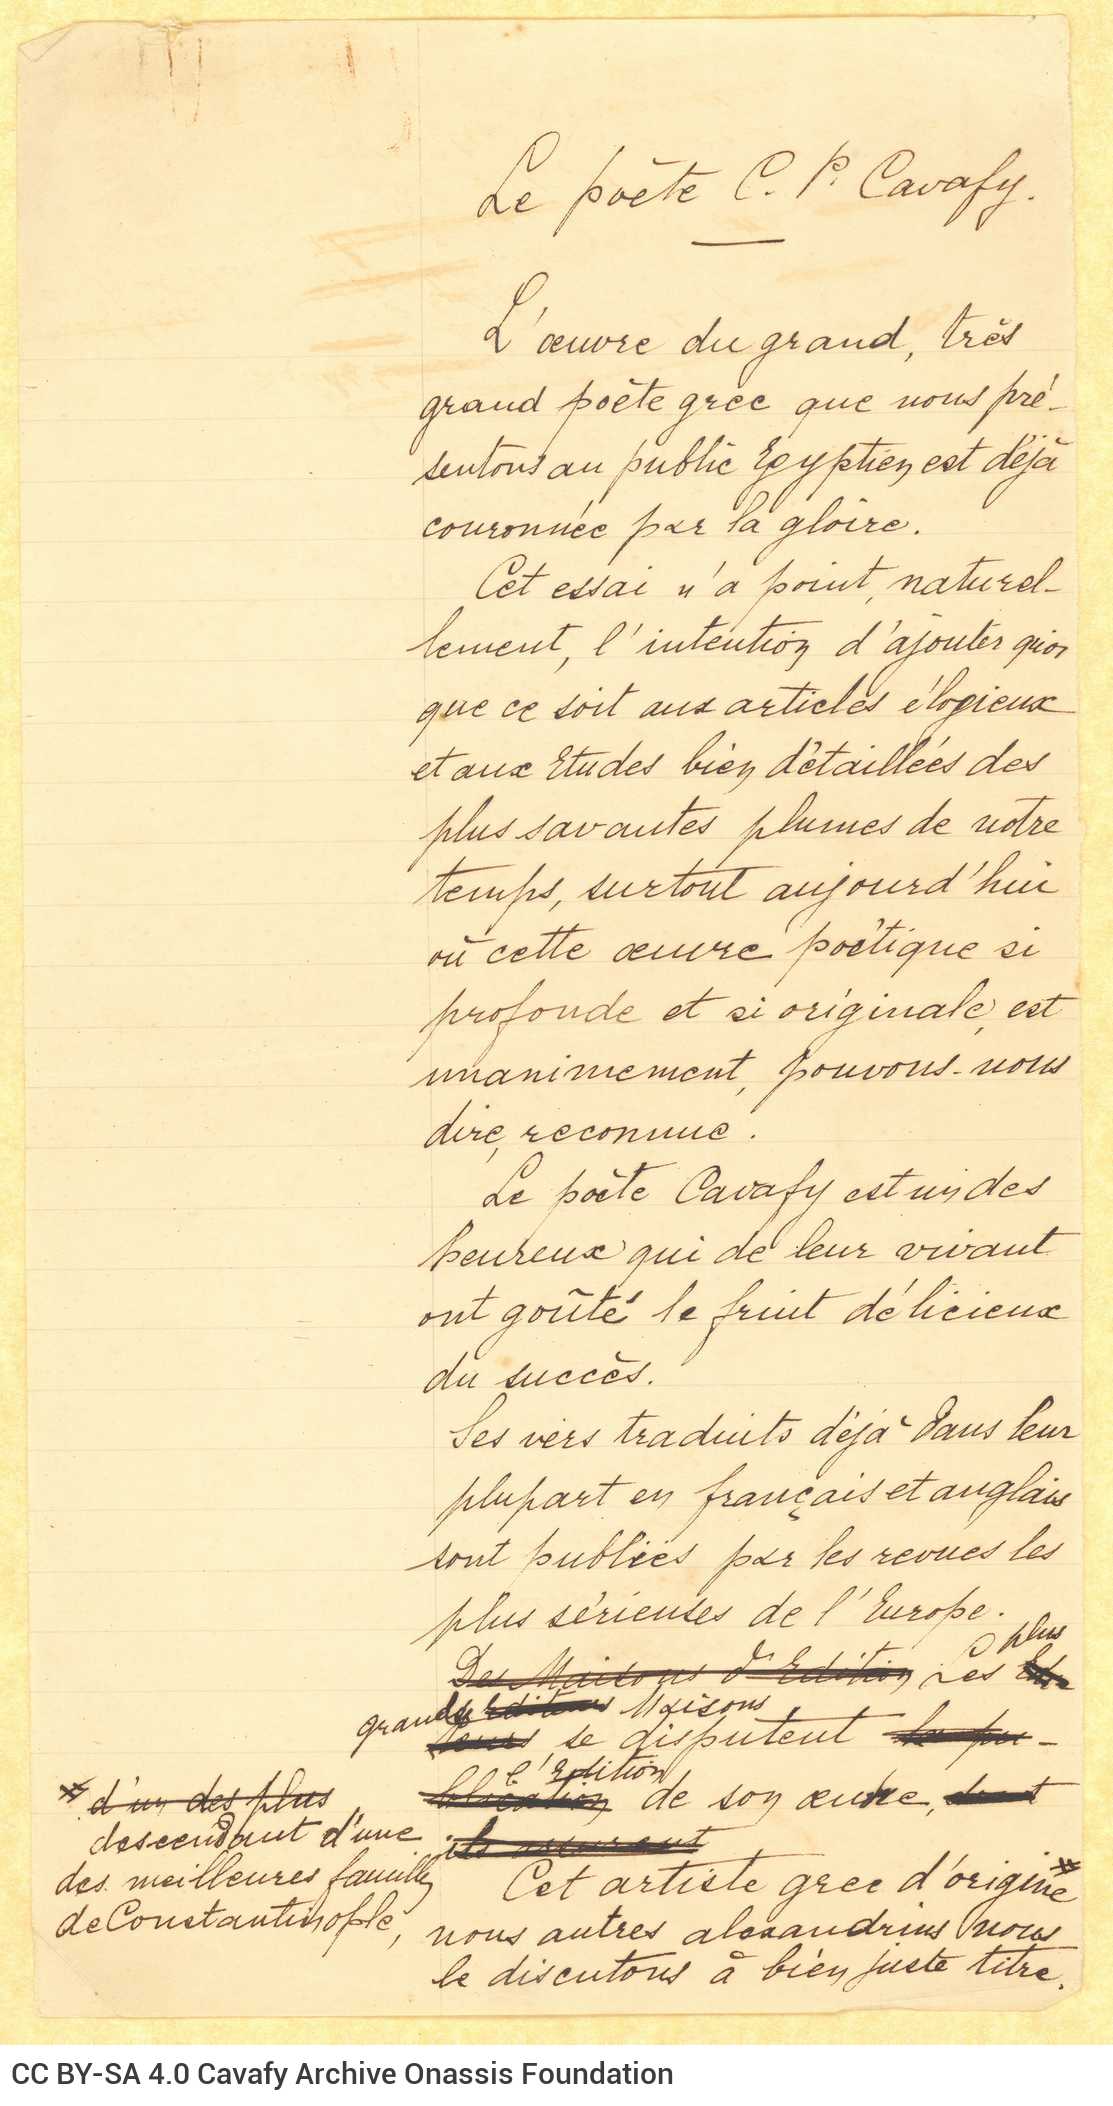 Le poète C. P. Cavafy.
L'œuvre du grand, très
grand poète grec que nous pré-
sentons au public Egyptien est déjà
couronnée par la gloire.
Cet essai n'a point, naturel-
lement, l'intention d'ajouter quoi
que ce soit aux articles élogieux
et aux Etudes bien détaillées des
plus savantes plumes de notre
temps, surtout aujourd'hui
où cette œuvre poètique si
profonde et si originale, est
unanimement, pouvons-nous
dire, reconnue.
Le poète Cavafy est un des
heureux qui de leur vivant
ont goûté le fruit délicieux
du succès.
Ses vers traduits déjà dans leur
plupart en français et anglais
sont publiées par les revues les
plus sérieuses de l'Europe.
Des Maisons d'Edition Les plus
grandes Editeurs Maisons
se disputent la pu-
l'Edition
blication de son œuvre, dont
ils assurent
Cet artiste grec d'origine*
nous autres alexandrins nous
le discutons à bien juste titre.
* d'un des plus
descendant d'une
des meilleures familles
de Constantinople,
CC BY-SA 4.0 Cavafy Archive Onassis Foundation